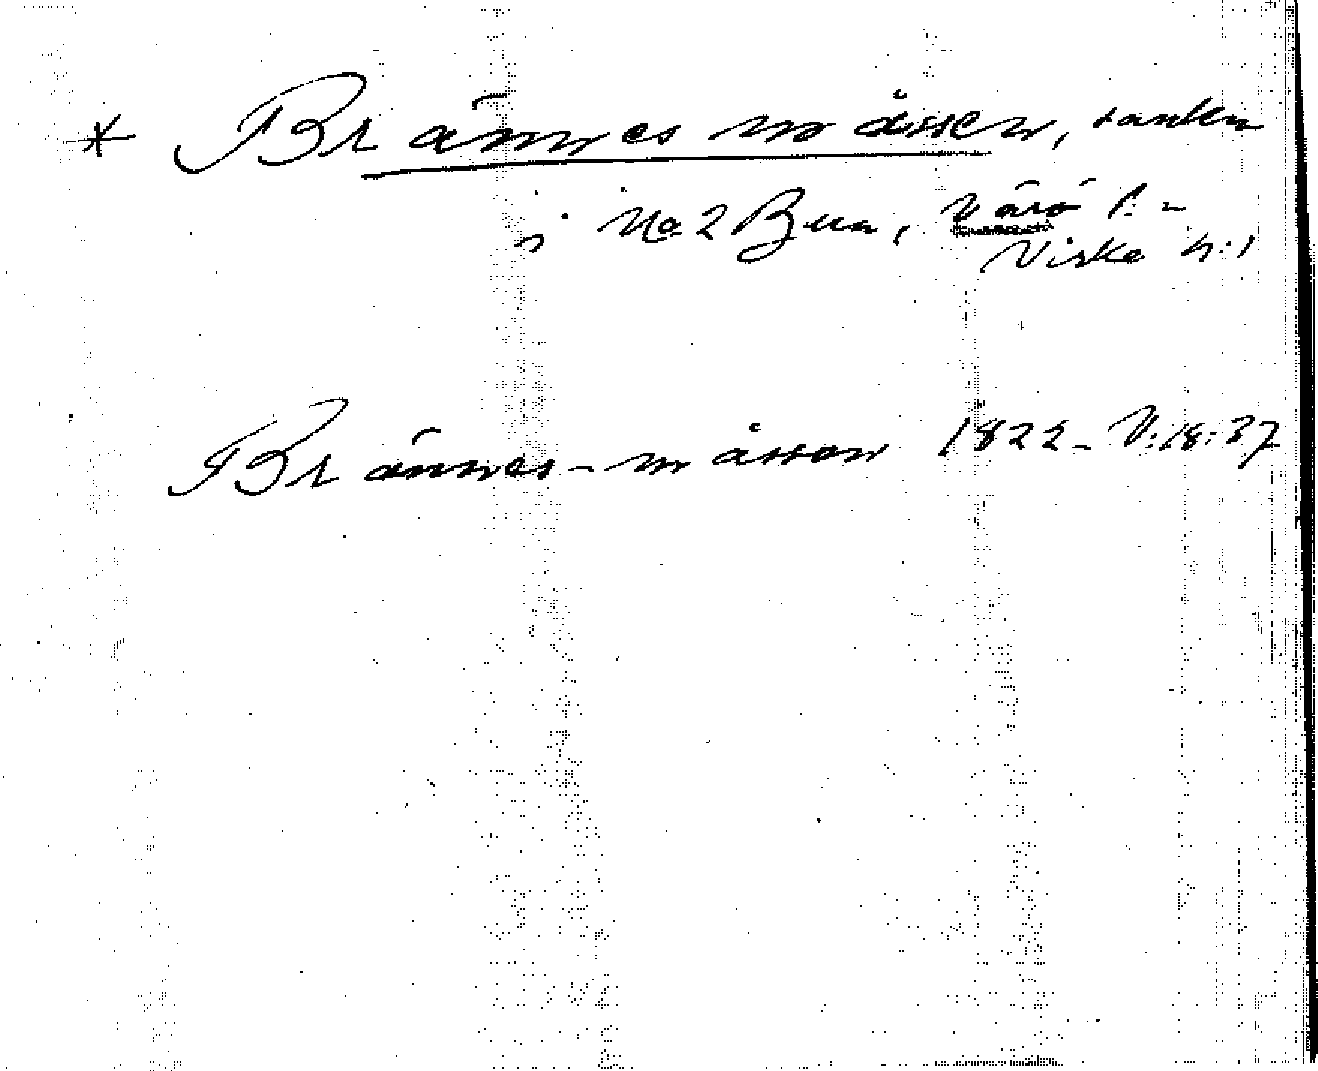 * Brännes måssen, sanken
i No 2 Bua, Värö s:n
Viske h:d
Brännes-måssen 1822- V:18:37